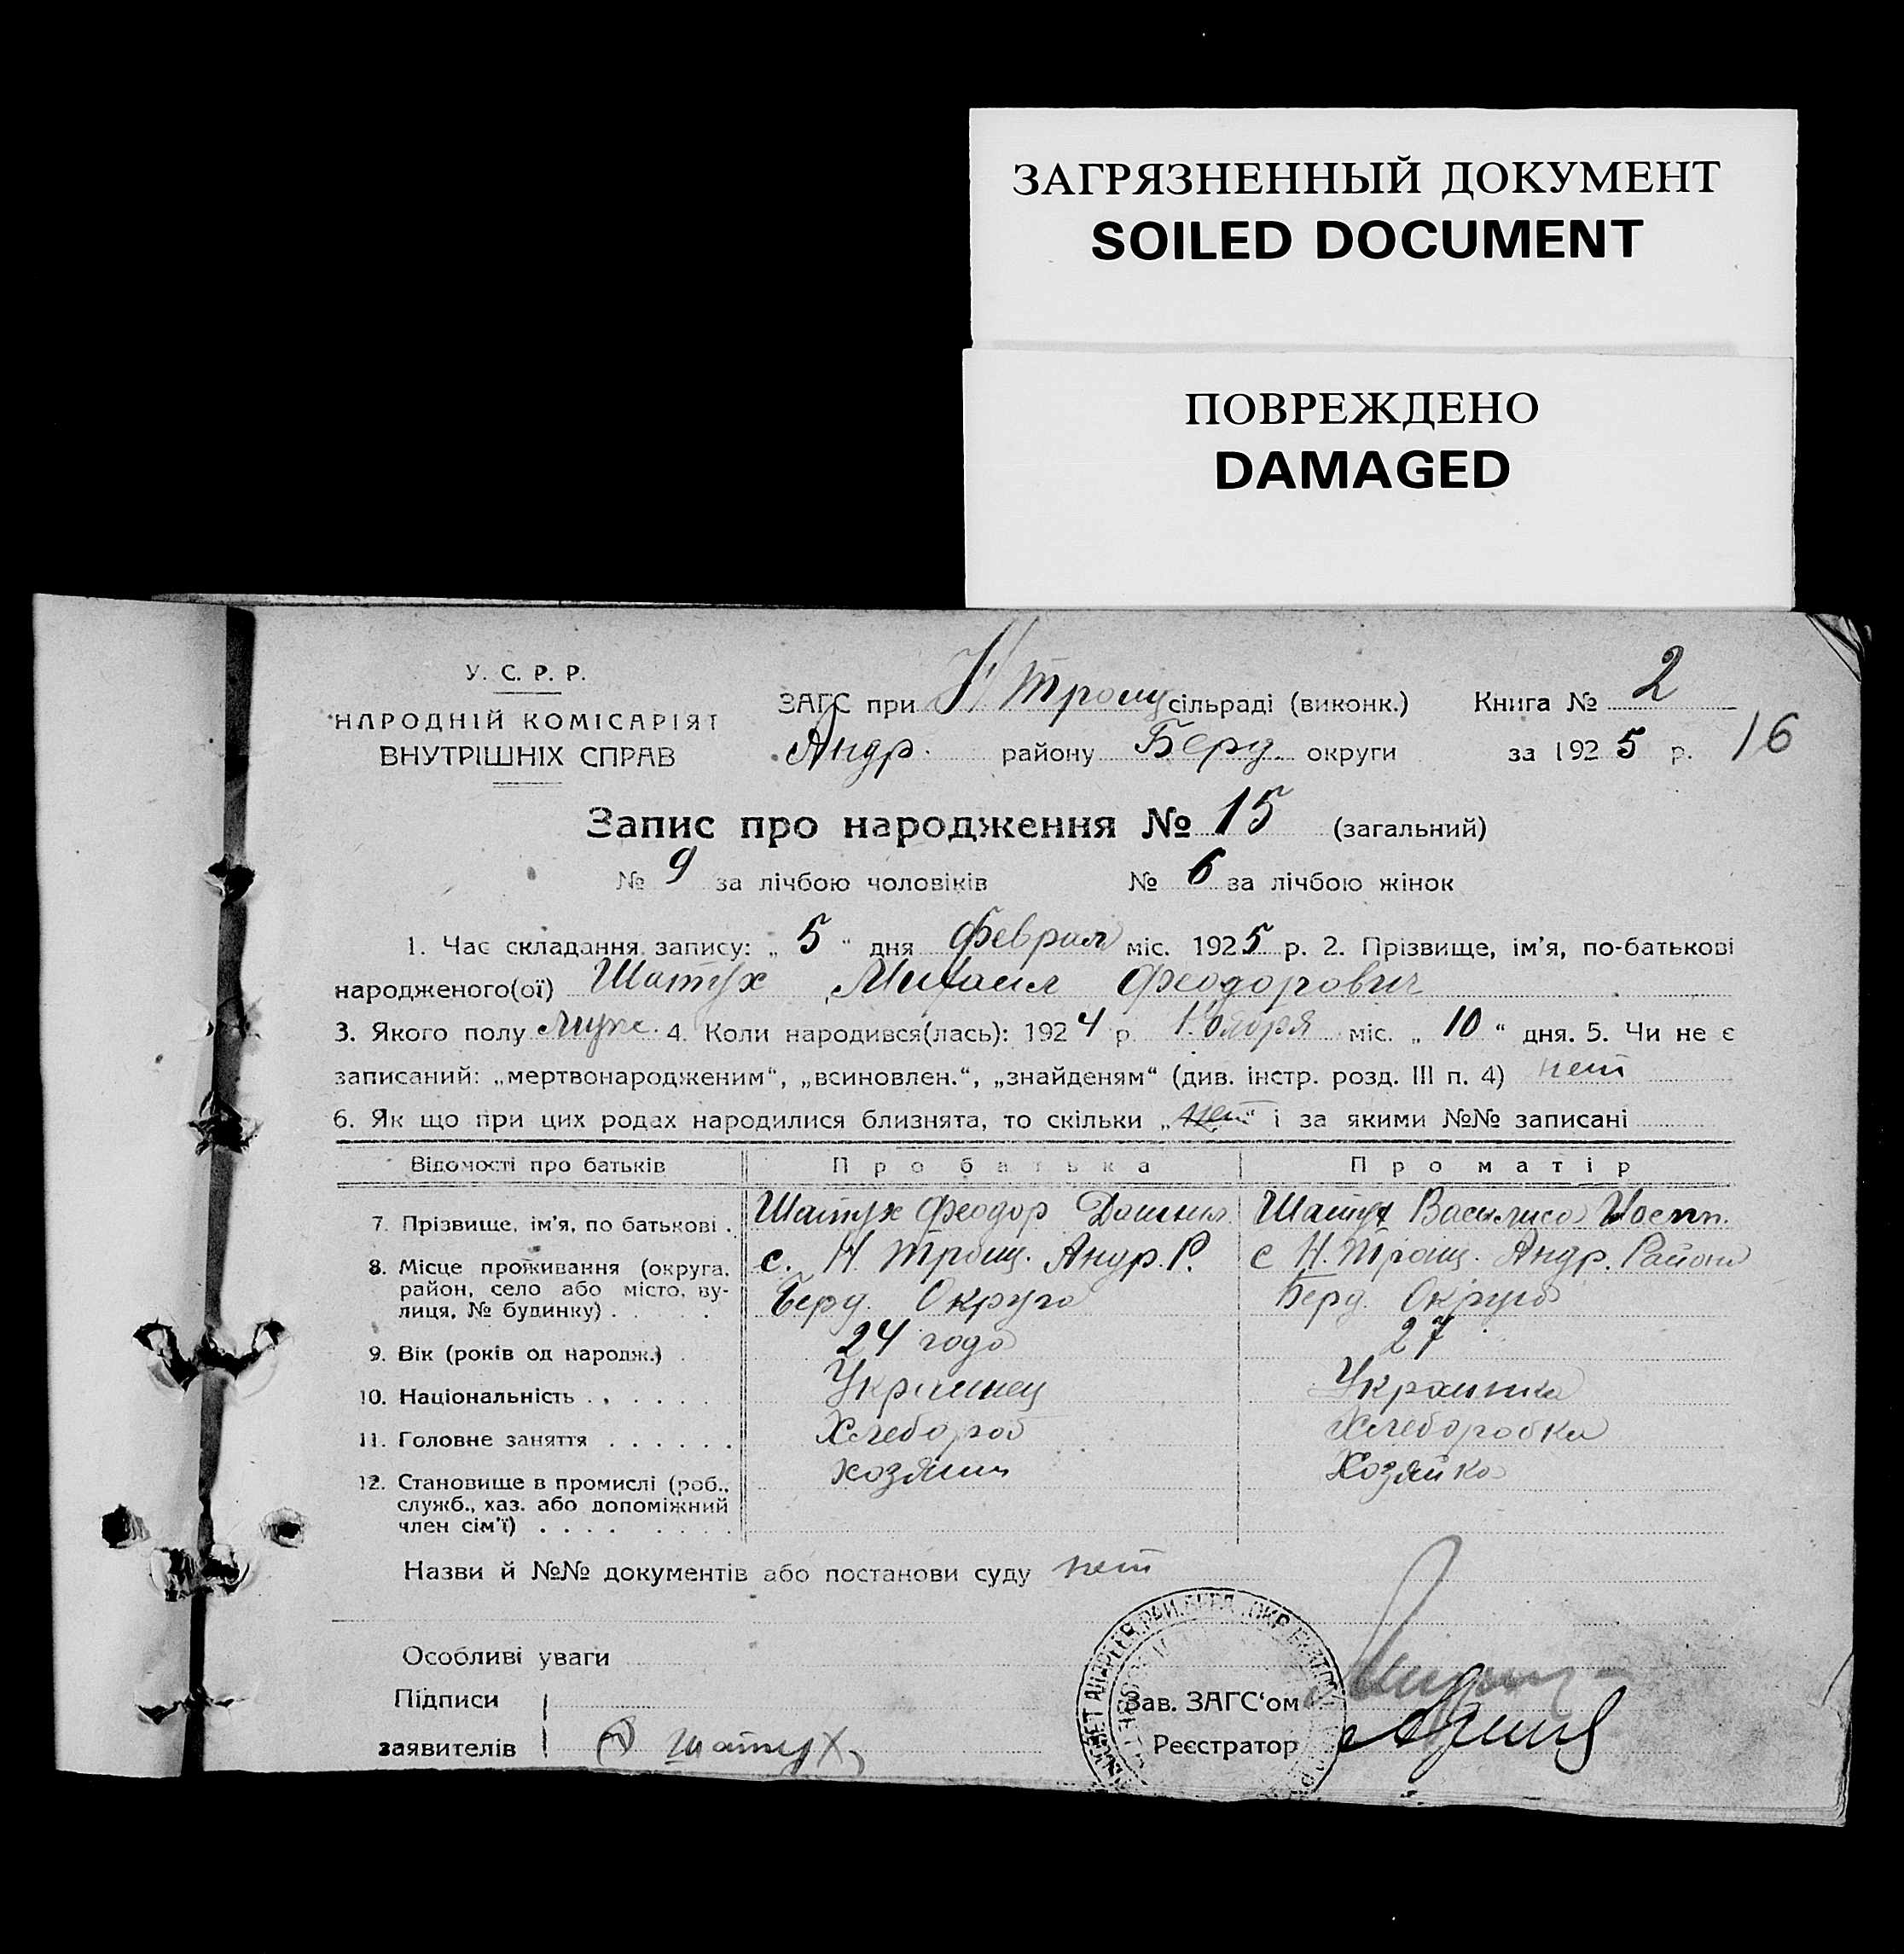 ЗАГРЯЗНЕННЫЙ ДОКУМЕНТ
SOILED DOCUMENT
ПОВРЕЖДЕНО
DAMAGED
У. С. Р. Р.
НАРОДНІЙ КОМІСАРІЯТ
ВНУТРІШНІХ СПРАВ
ЗАГС при Н Троиц сільраді (виконк.) Книга № 2
Андр. району Берд. округи за 1925 р. 16
Запис про народження № 15 (загальний)
№ 9 за лічбою чоловіків № 6 за лічбою жінок
1. Час складання запису: „5“ дня Февраля міс. 1925 р. 2. Прізвище, ім’я, по-батькові
народженого(ої) Шатух Михаил Феодорович
3. Якого полу муж. 4. Коли народився(лась): 1924 р. Ноября міс. „10“ дня. 5. Чи не є
записаний: „мертвонародженим“, „всиновлен.“, „знайденям“ (див. інстр. розд. III п. 4) нет
6. Як що при цих родах народилися близнята, то скільки „нет“ і за якими №№ записані
Відомості про батьків Про батька Про матір
7. Прізвище, ім’я, по батькові . Шатух Феодор Шатух Василиса
8. Місце проживання (округа, район, село або місто, вулиця, № будинку) . с. Н. Троиц. Андр. Р. с Н. Троиц. Андр. Район
Берд. Округа Берд. Округа
9. Вік (років од народж.) . 24 года 27
10. Національність . . . . . . Украинец Украинка
11. Головне заняття . . . . . . Хлебороб Хлеборобка
12. Становище в промислі (роб., служб., хаз. або допоміжний член сім’ї) . . . . хозяин Хозяйка
Назви й №№ документів або постанови суду нет
Особливі уваги
Підписи
заявителів Шатух
Зав. ЗАГС‘ом
Реєстратор